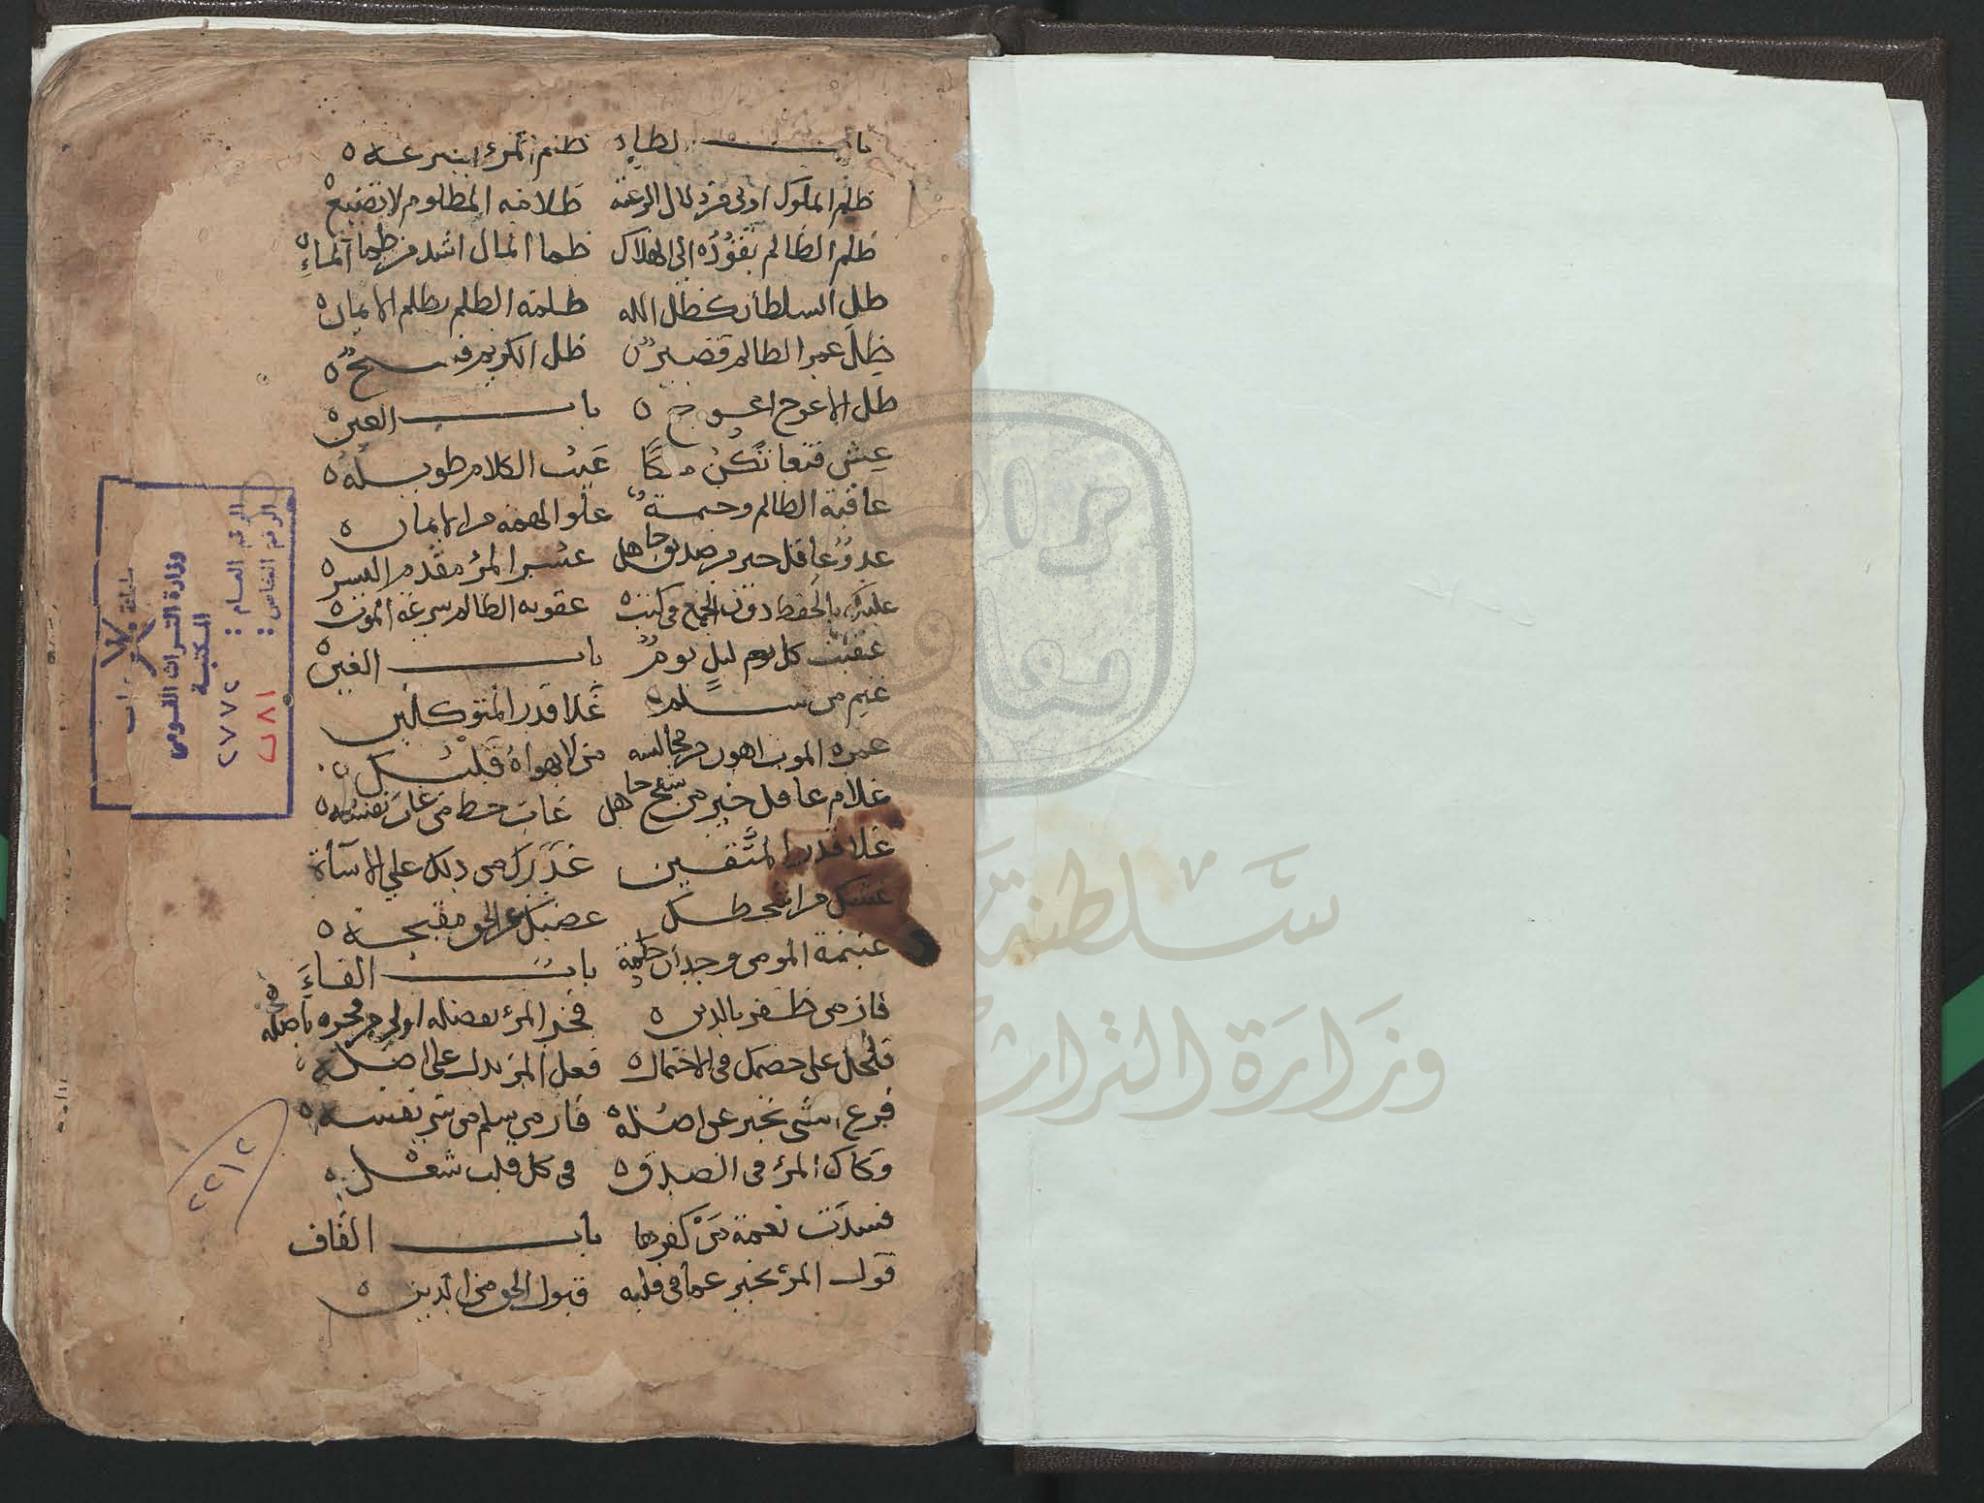 باب الظاء ظلم المرء
ظلم الملوك اولى من دلال الرعية ظلامة المظلوم لا تضيع
ظلم الظالم يقوده الى الهلاك ظما المال اشد من ظما الماء
ظل السلطان كظل الله ظلمة الظلم يظلم الايمان
ظل عمر الظالم قصير ظل الكريم فسيح
ظل الاعوج اعوج باب العين
عش قنعا تكن ملكا عيب الكلام طويله
عاقبة الظالم وخيمة علو الهمة من الايمان
عدو عاقل خير من صديق جاهل عسر المرء مقدم اليسر
عليك بالحفظ دون الجمع في كتب عقوبة الظالم سرعة الموت
كل يوم ليل يوم باب الغين
غنم من سلم غلا قدر المتوكلين
غمرة الموت اهون من مجالسة من لا يهواه قلبك
غلام عاقل خير من شيخ جاهل غاب حظ من غاب نفسه
غلا قدر المتقين غدرك من دلك على الاساة
غشك من اسخطك غضبك عن الحق مقبحة
غنيمة المومن وجدان حكمة باب الفاء
فاز من ظفر بالدين فخر المرء بفضله اولى من فخره باصله
على خصمك في الاحتمال فعل المرء يدل على اصله
فرع الشي يخبر عن اصله فاز من سلم من شر نفسه
فكاك المرء في الصدق في كل قلب شغل
فسدت نعمة من كفرها باب القاف
قول المرء يخبر عما في قلبه قبول الحق من الدين
وزارة التراث القومي
المكتبة
الرقم العام : ٢٧٧٢
الرقم الخاص : ١٨١ ب
٢٢١٢
سلطنة
وزارة التراث